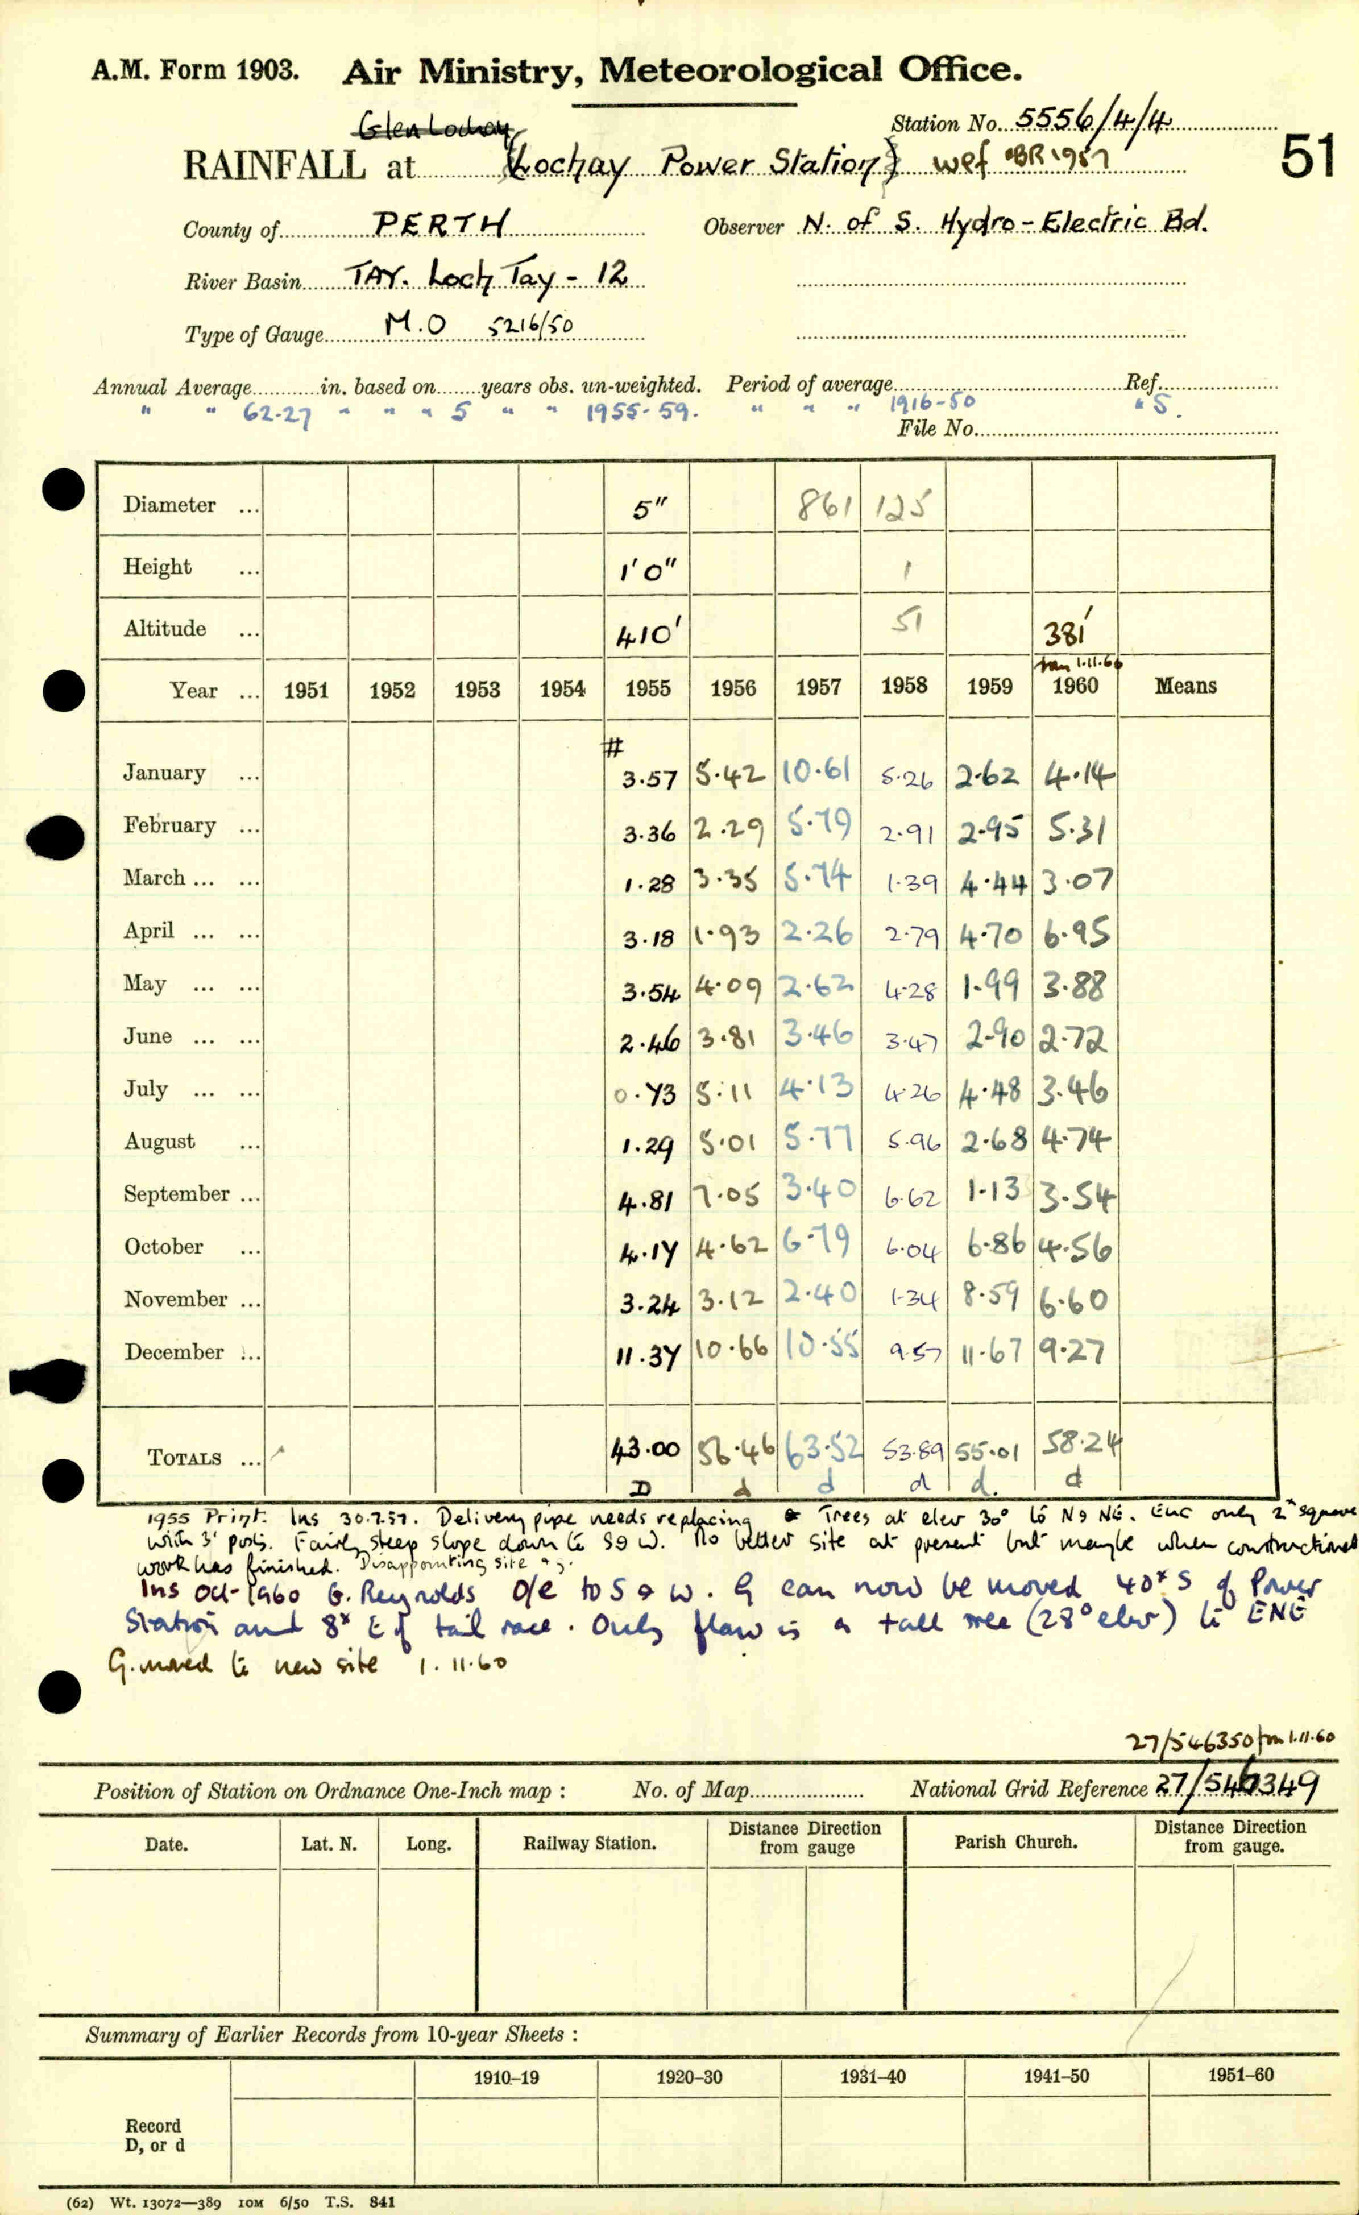 A.M. Form 1903. Air Ministry, Meteorological Office.
Glen Lochay
Station No. 5556/4/4
RAINFALL at (Lochay Power Station) wef BR 1957
51
County of PERTH Observer N. of S. Hydro-Electric Bd.
River Basin TAY. Loch Tay - 12
Type of Gauge M.O 5216/50
Annual Average in. based on years obs. un-weighted. Period of average Ref.
" " 62.27 " " " 5 " " 1955-59. " " " 1916-50 " S.
File No.
Diameter ... 5" 861 125
Height ... 1'0" 1
Altitude ... 410' 51 381'
from 1.11.60
Year ... 1951 1952 1953 1954 1955 1956 1957 1958 1959 1960 Means
#
January ... 3.57 5.42 10.61 5.26 2.62 4.14
February ... 3.36 2.29 5.79 2.91 2.95 5.31
March ... ... 1.28 3.35 5.74 1.39 4.44 3.07
April ... ... 3.18 1.93 2.26 2.79 4.70 6.95
May ... ... 3.54 4.09 2.62 4.28 1.99 3.88
June ... ... 2.46 3.81 3.46 3.47 2.90 2.72
July ... ... 0.73 5.11 4.13 4.26 4.48 3.46
August ... 1.29 5.01 5.77 5.96 2.68 4.74
September ... 4.81 7.05 3.40 6.62 1.13 3.54
October ... 4.17 4.62 6.79 6.04 6.86 4.56
November ... 3.24 3.12 2.40 1.34 8.59 6.60
December ... 11.37 10.66 10.55 9.57 11.67 9.27
TOTALS ... 43.00 56.46 63.52 53.89 55.01 58.24
D d d d d. d
1955 Print. Ins 30.7.57. Delivery pipe needs replacing & Trees at elev 30° to N & NE. Enc only 2" square
with 3' posts. Fairly steep slope down to S & W. No better site at present but maybe when constructional
work has finished. Disappointing site
Ins Oct-1960 G. Reynolds O/E to S & W. G can now be moved 40x S of Power
Station and 8x E of tail race. Only flaw is a tall tree (28° elev) to ENE
G. moved to new site 1.11.60
27/546350 from 1.11.60
Position of Station on Ordnance One-Inch map : No. of Map National Grid Reference 27/546349
Date. Lat. N. Long. Railway Station. Distance Direction from gauge Parish Church. Distance Direction from gauge.
Summary of Earlier Records from 10-year Sheets :
1910-19 1920-30 1931-40 1941-50 1951-60
Record
D, or d
(62) Wt. 13072—389 10M 6/50 T.S. 841